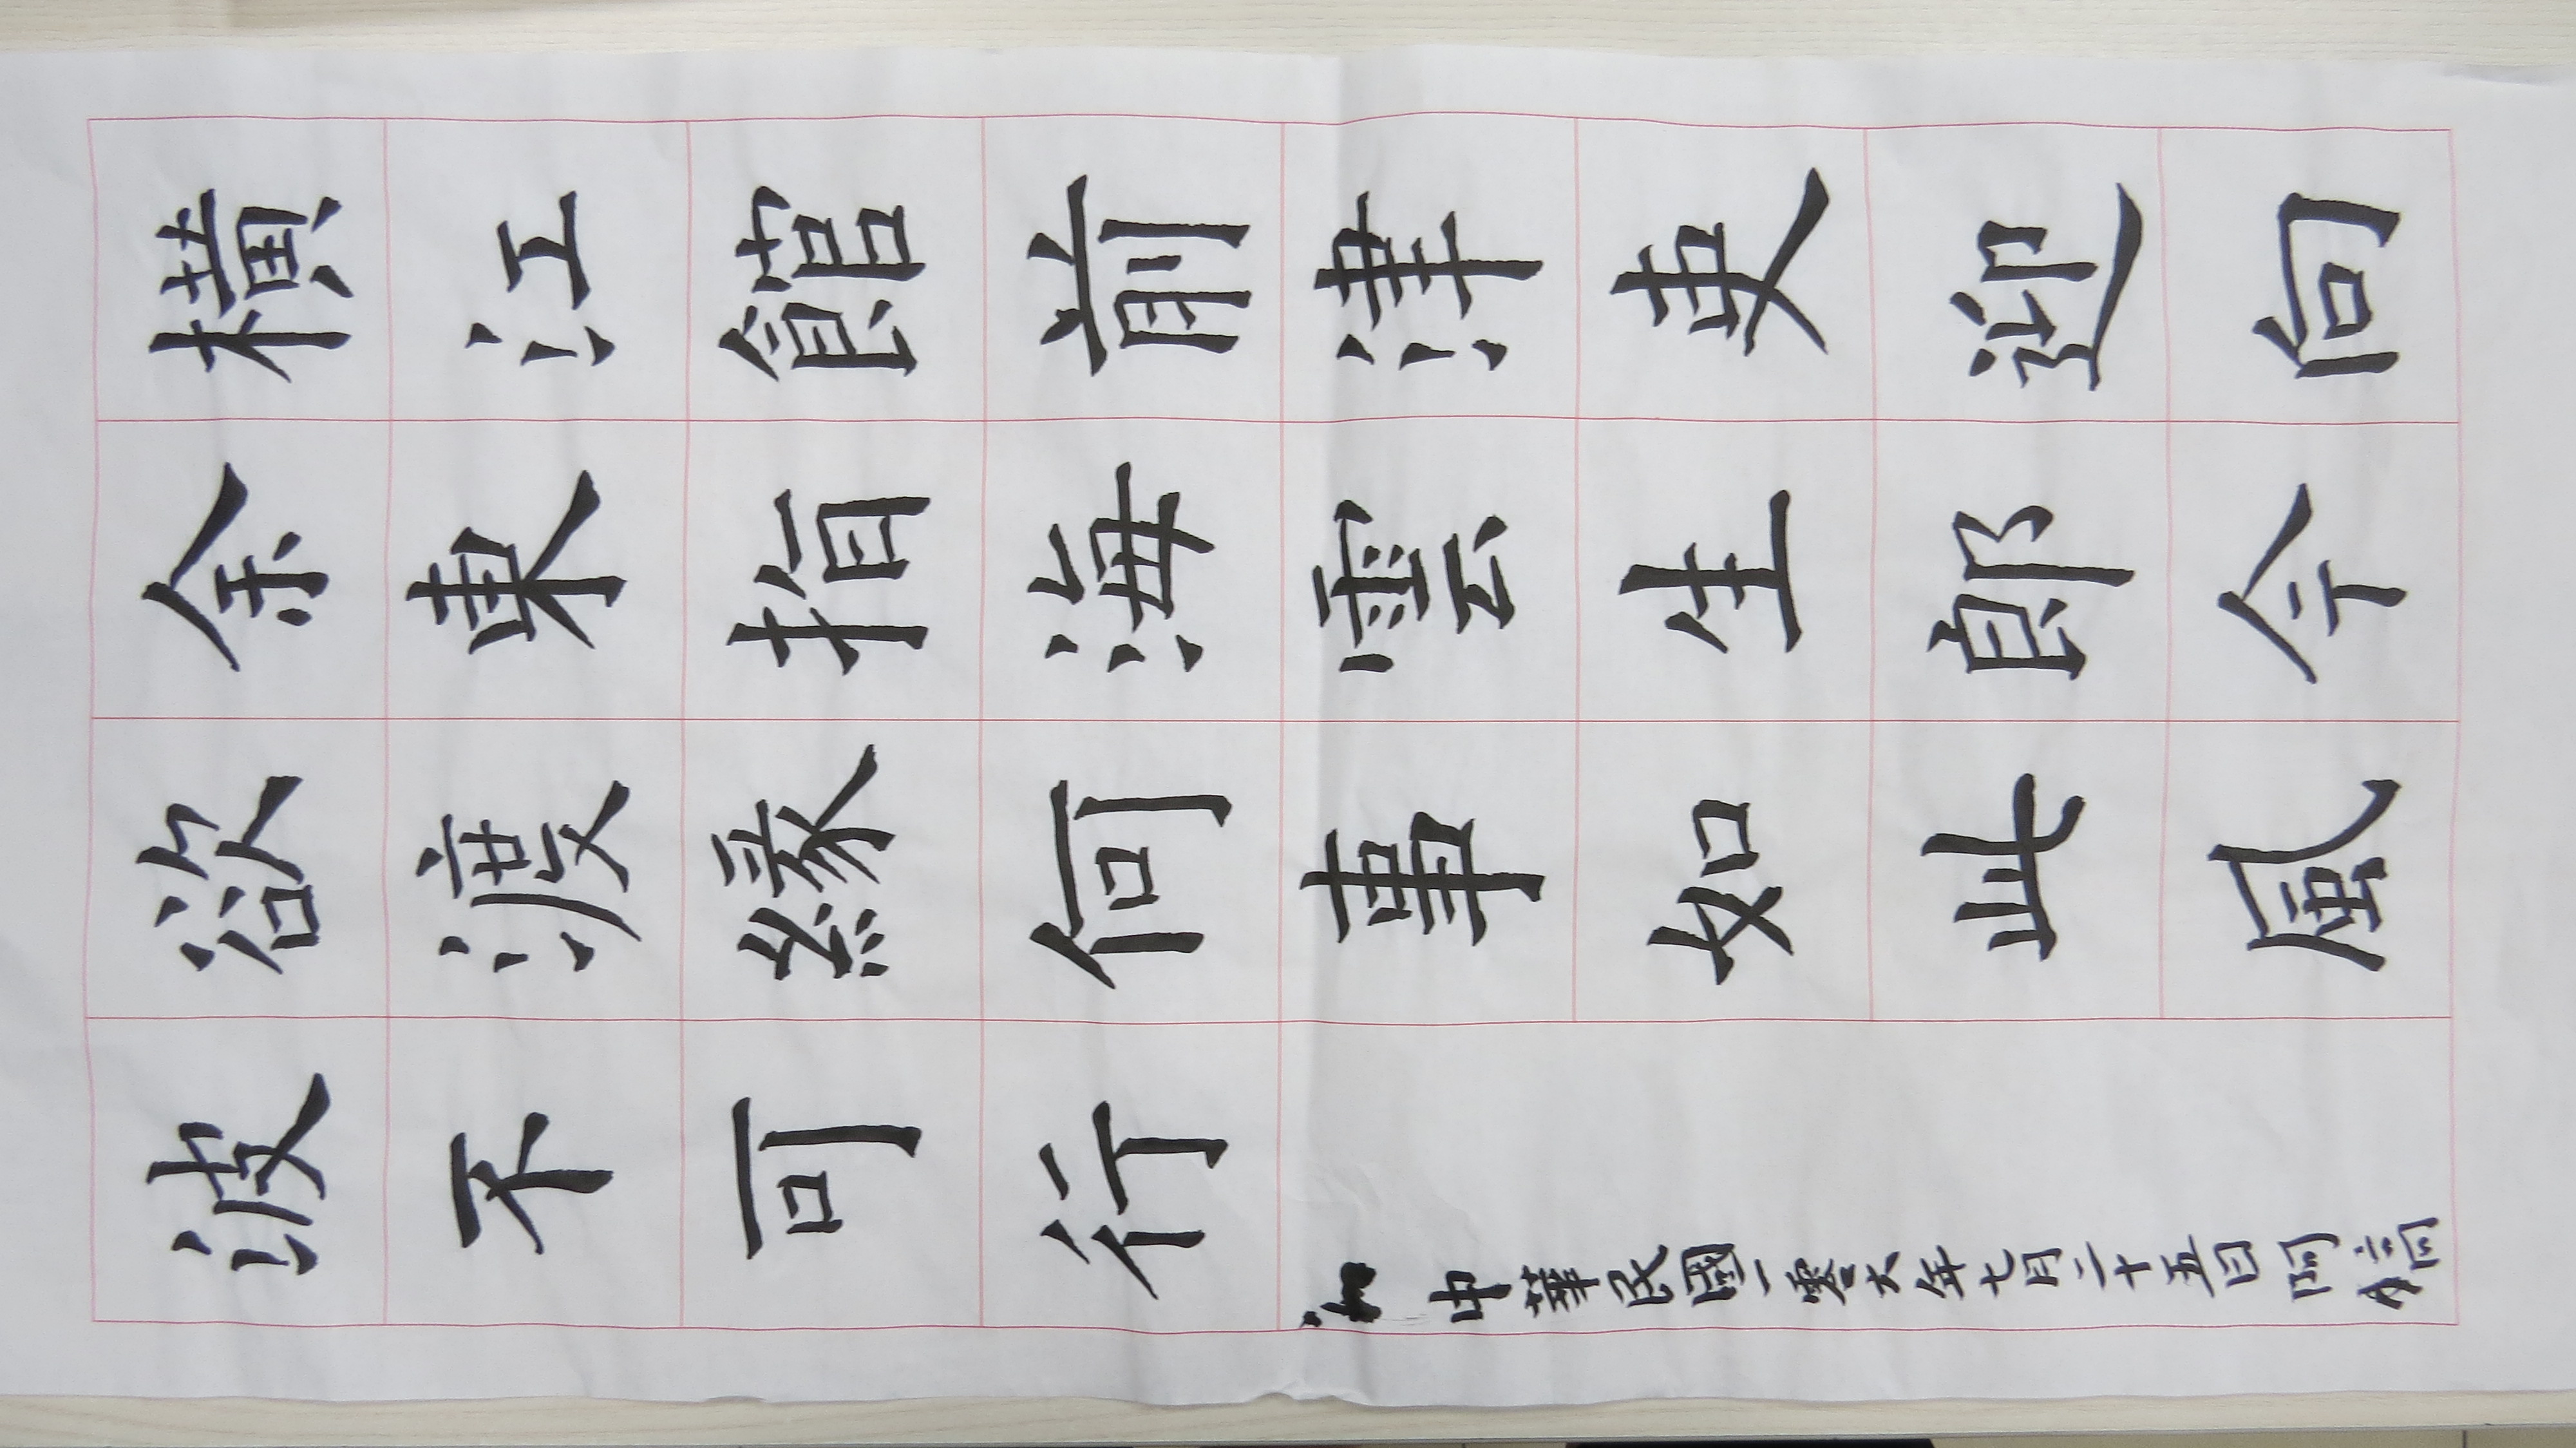 橫江館前津吏迎向
余東指海雲生郎今
欲渡緣何事如此風
波不可行
中華民國一零六年七月二十五日